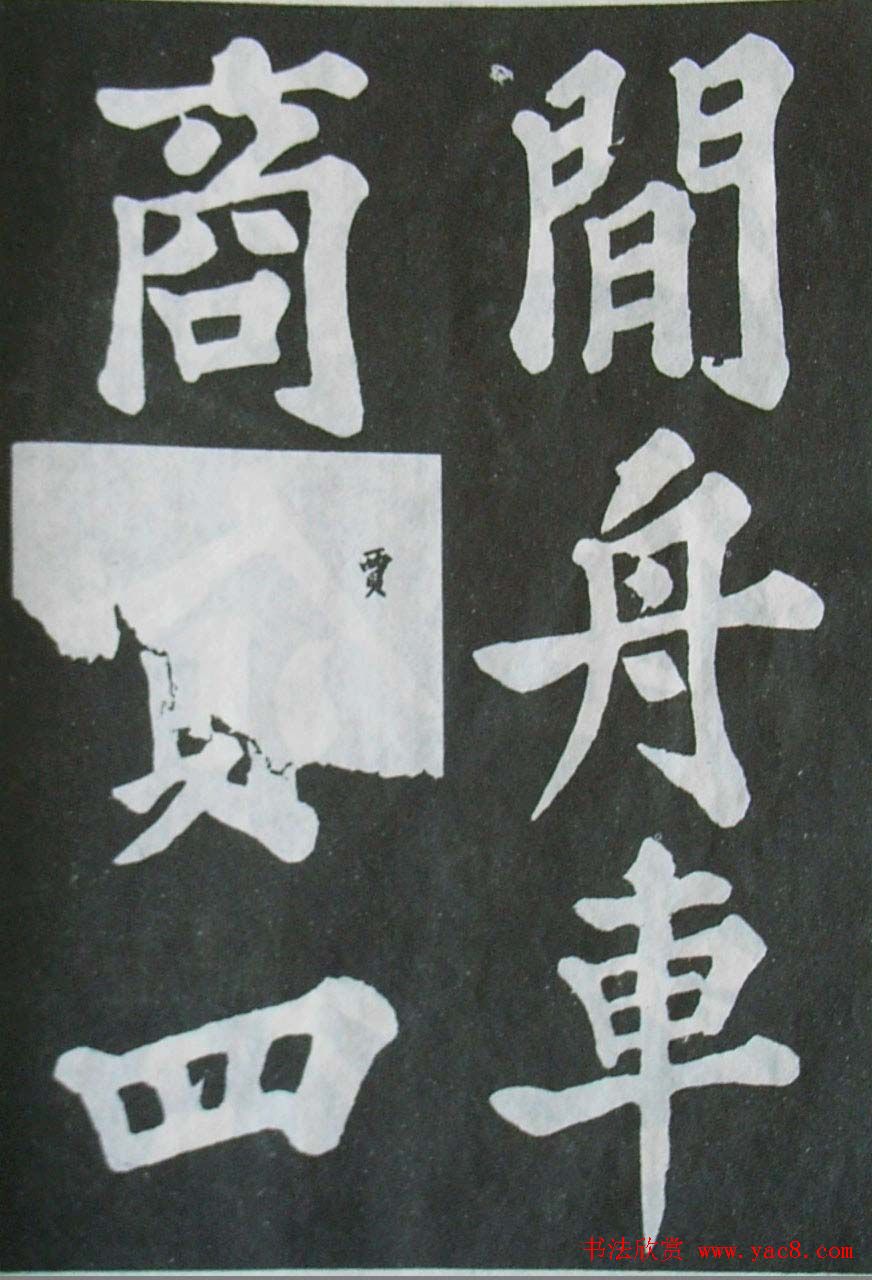 間舟車
商賈四
賈
书法欣赏 www.yac8.com